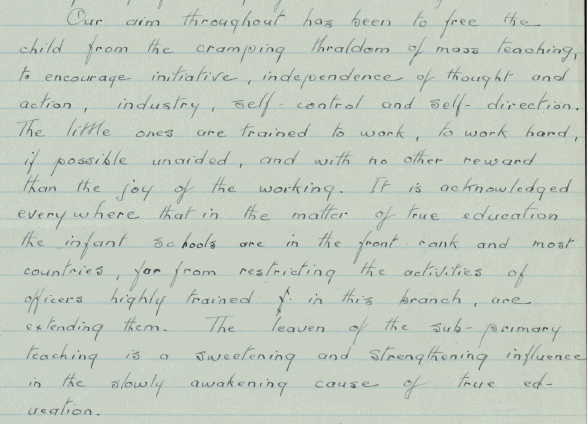 Our aim throughout has been to free the
child from the cramping thraldom of mass teaching,
to encourage initiative, independence of thought and
action, industry, self-control and self-direction.
The little ones are trained to work, to work hard,
if possible unaided, and with no other reward
than the joy of the working. It is acknowledged
everywhere that in the matter of true education
the infant schools are in the front rank and most
countries, far from restricting the activities of
officers highly trained in this branch, are
extending them. The leaven of the sub-primary
teaching is a sweetening and strengthening influence
in the slowly awakening cause of true ed-
ucation.